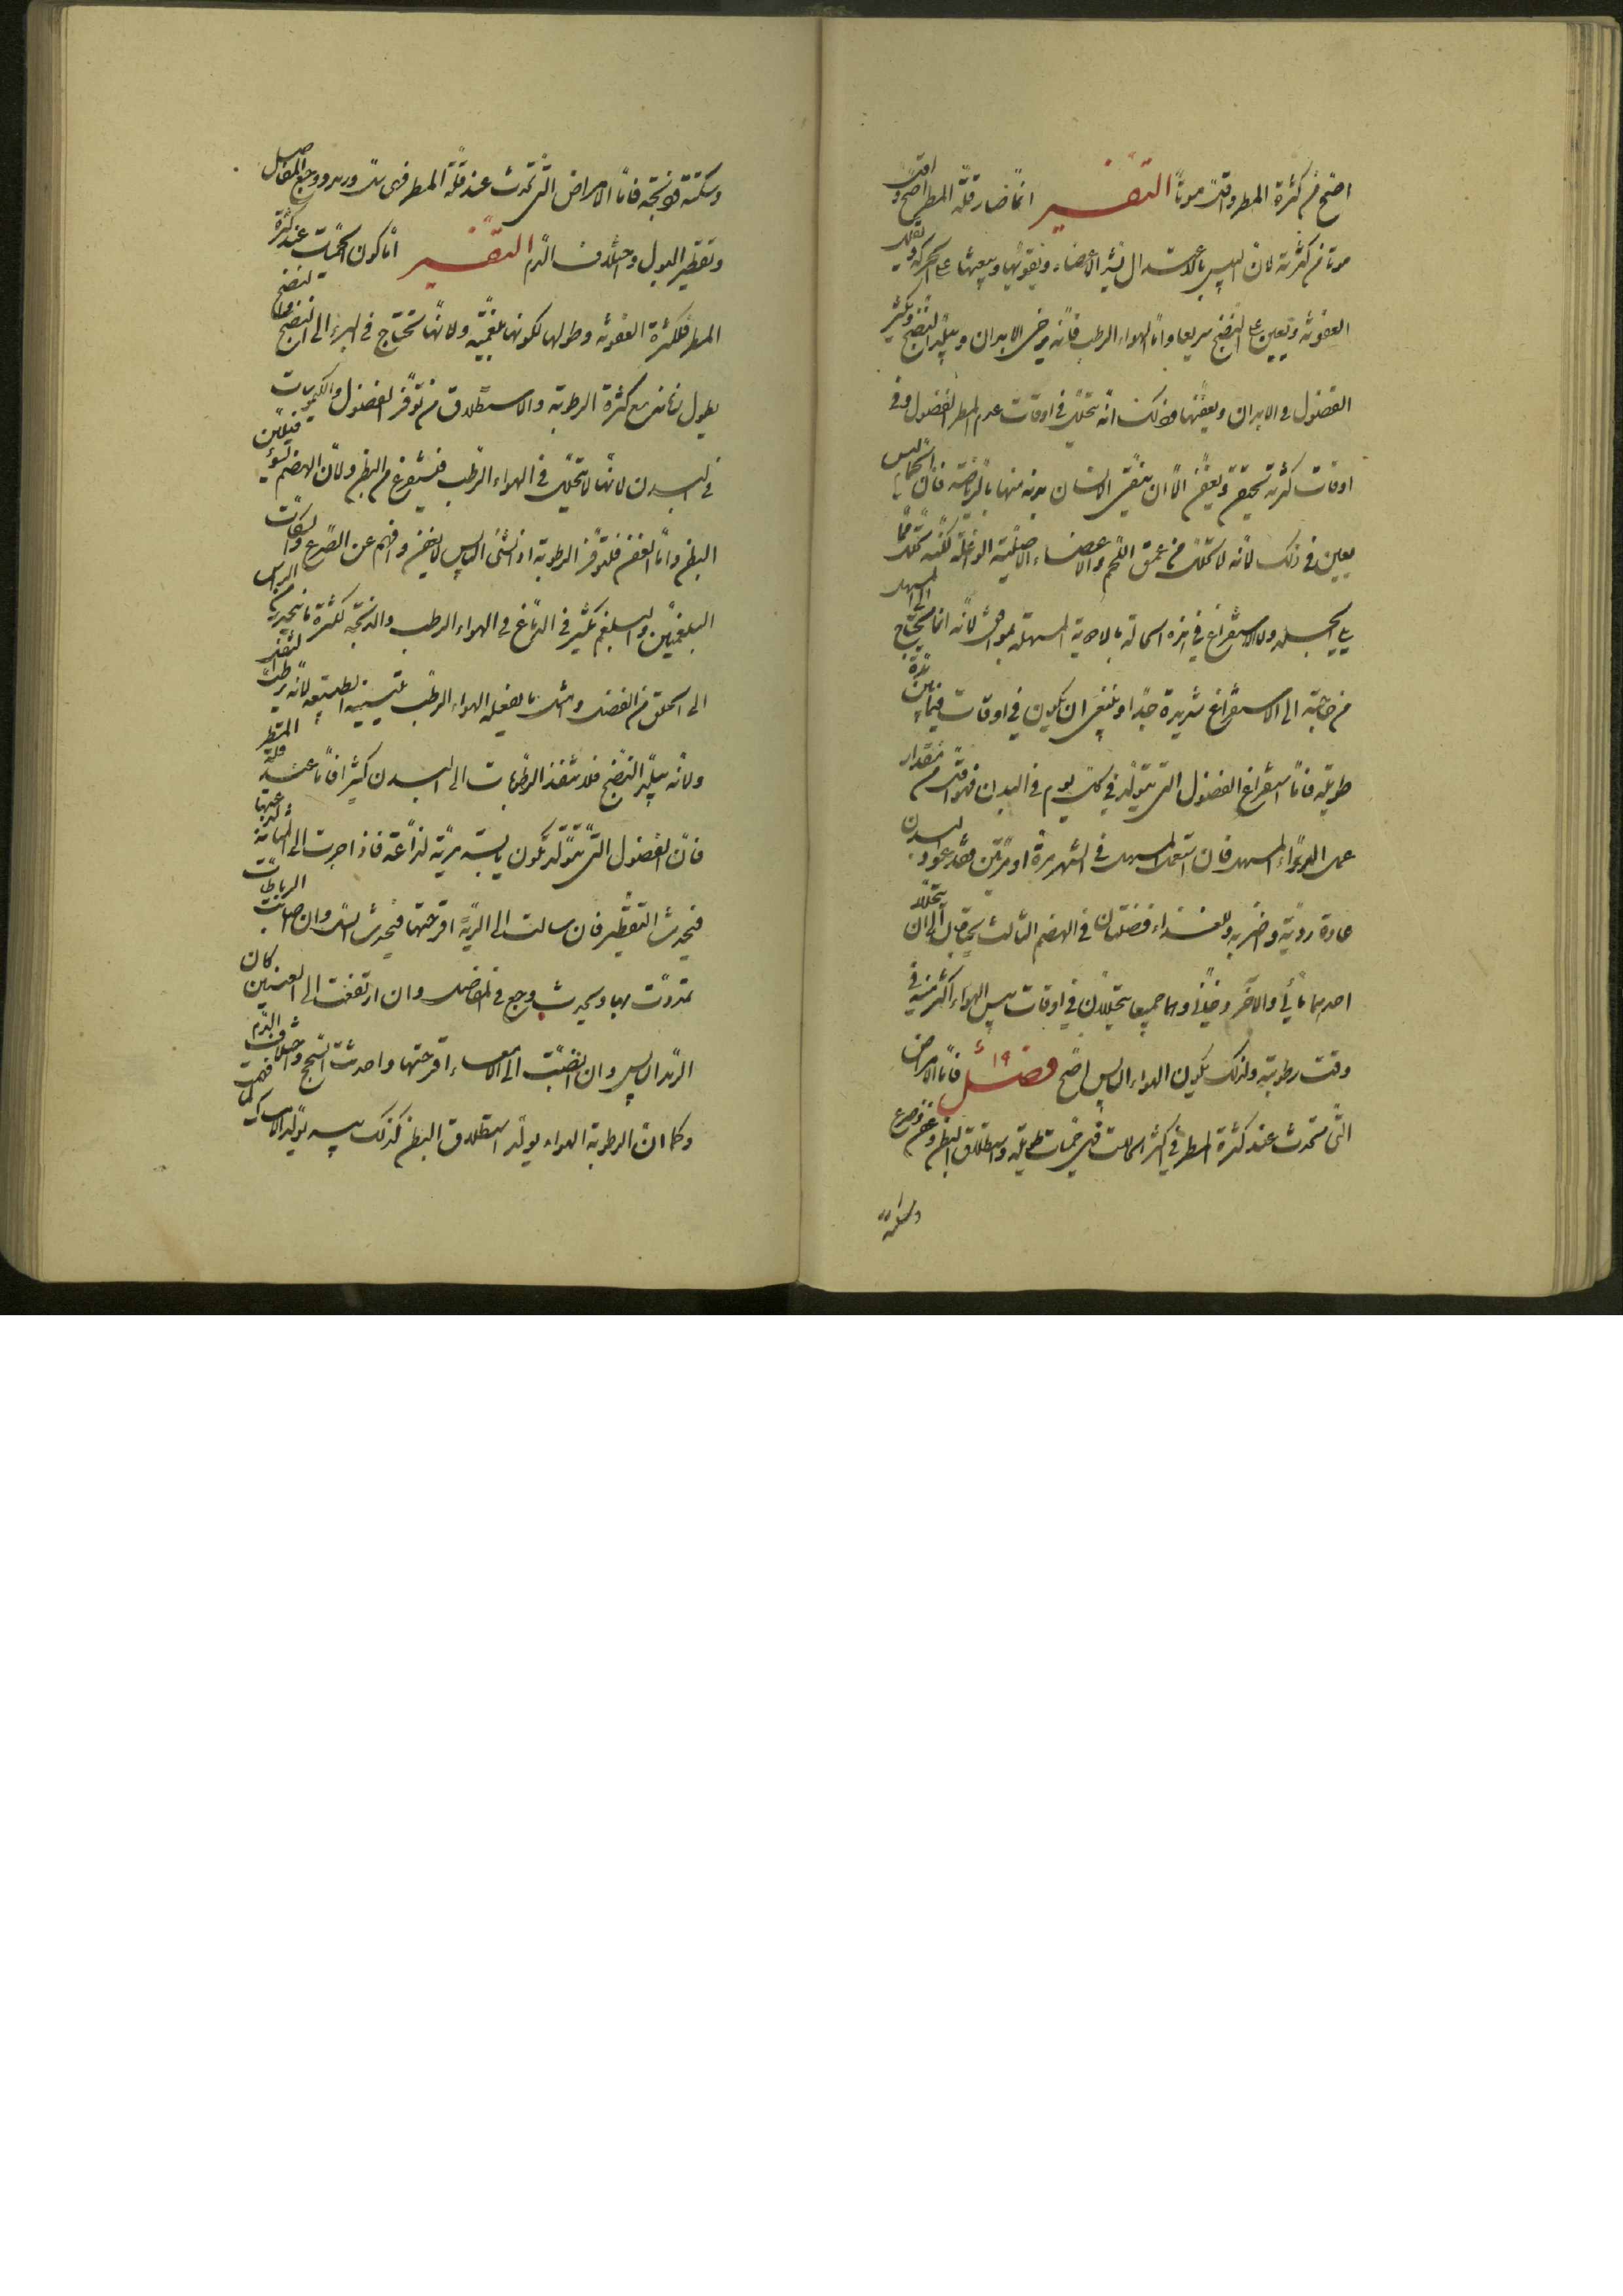 اصح من كثرة المطر واقل موتا التفسير انما صار قلة المطر اصح واقل
موتا من كثرته لان اليبس بالاعتدال يشد الاعضاء ويقويها ويبعثها على الحركة ويقلل
العفونة ويعين على النضج سريعا واما الهواء الرطب فانه يرخى الابدان ويبلد النضج ويكثر
الفضول فى الابدان ويعفنها وذلك انه يتحلل فى اوقات عدم المطر الفضول وفى
اوقات كثرته تحتقن وتعفن الا ان ينقى الانسان بدنه منها بالرياضة فان الحمام ليس
يعين فى ذلك لانه لا يحلل من عمق اللحم والاعضاء الاصلية الداخلة لكنه يحلل مما
يلى الجلد ولا الاستفراغ فى هذه الحالة بالادوية المسهلة بموافق لانه انما يحتاج الى المسهل
من حاجته الى الاستفراغ شديدة جدا وينبغى ان يكون فى اوقات فيما بين مدة
طويلة فاما استفراغ الفضول التى تتولد فى كل يوم فى البدن فهو اقل من مقدار
عمل الدواء المسهل فان استعمل المسهل فى الشهر مرة او مرتين فقد عود البدن
عادة ردية واضر به وللغذاء فضلتان فى الهضم الثالث يحتاجان الى ان يتحللا
احدهما مائى والآخر دخانى وهما جميعا يتحللان فى اوقات يبس الهواء اكثر منه فى
وقت رطوبته ولذلك يكون الهواء اليابس اصح فصل ١٩ فاما الامراض
التى تحدث عند كثرة المطر فى اكثر الحالات فهى حميات طويلة واستطلاق البطن وعفن وصرع
وسكتة
وسكتة وذبحة فاما الامراض التى تحدث عند قلة المطر فهى سل ورمد ووجع المفاصل
وتقطير البول واختلاف الدم التفسير اما كون الحميات عند كثرة
المطر فلكثرة العفونة وطولها لكونها بلغمية ولانها تحتاج فى البرء الى النضج والنضج
يطول زمانه مع كثرة الرطوبة والاستطلاق من توفر الفضول والكيموسات
فى البدن لانها لا تتحلل فى الهواء الرطب فتستفرغ من البطن ولان الهضم يسوء فيلين
البطن واما العفن فلتوفر الرطوبة اذ الشئ اليابس لا يعفن وافهم عن الصرع والسكات
البلغميين والبلغم يكثر فى الدماغ فى الهواء الرطب والذبحة لكثرة ما ينحدر من الراس
الى الحلق من الفضل وافهم ما يفعله الهواء الرطب بتليينه الطبيعة لانه يرطب الثفل
ولانه يبلد النضج فلا تنفذ الرطوبات الى البدن كثيرا فاما عند قلة المطر
فان الفضول التى تتولد تكون يابسة مرية لذاعة فاذا جرت الى المثانة لذعتها
فيحدث التقطير فان سالت الى الرية اقرحتها فيحدث السل وان اصابت الرباطات
تمددت بها ويحدث وجع فى المفاصل وان ارتفعت الى العينين كان
الرمد اليابس وان انصبت الى الامعاء اقرحتها واحدثت السحج واختلاف الدم
وكما ان الرطوبة الهواء يولد استطلاق البطن كذلك يبسه يولد الامساك